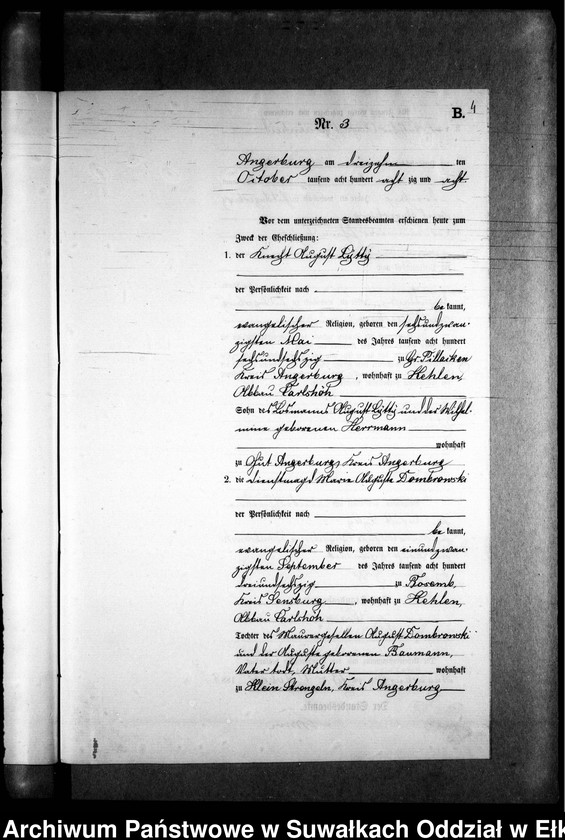 B. 4
Nr. 3
Angerburg am dreizehn ten
October tausend acht hundert acht zig und acht
Vor dem unterzeichneten Standesbeamten erschienen heute zum
Zweck der Eheschließung:
1. der Knecht August
der Persönlichkeit nach
be kannt,
evangelischer Religion, geboren den sechsundzwan-
zigsten Mai des Jahres tausend acht hundert
sechsundsechszig zu Gr. Pillacken
Kreis Angerburg, wohnhaft zu Kehlen,
Abbau Carlshöh
Sohn des Losmanns August und der Wilhel-
mine geborenen Herrmann
wohnhaft
zu Gut Angerburg, Kreis Angerburg
2. die Dienstmagd Marie Auguste Dombrowski
der Persönlichkeit nach
be kannt,
evangelischer Religion, geboren den einundzwan-
zigsten September des Jahres tausend acht hundert
dreiundsechszig zu
Kreis Sensburg, wohnhaft zu Kehlen,
Abbau Carlshöh
Tochter des Maurergesellen August Dombrowski
und der Auguste geborenen Baumann,
Vater todt, Mutter wohnhaft
zu Klein Strengeln, Kreis Angerburg
Archiwum Państwowe w Suwałkach Oddział w Ełk